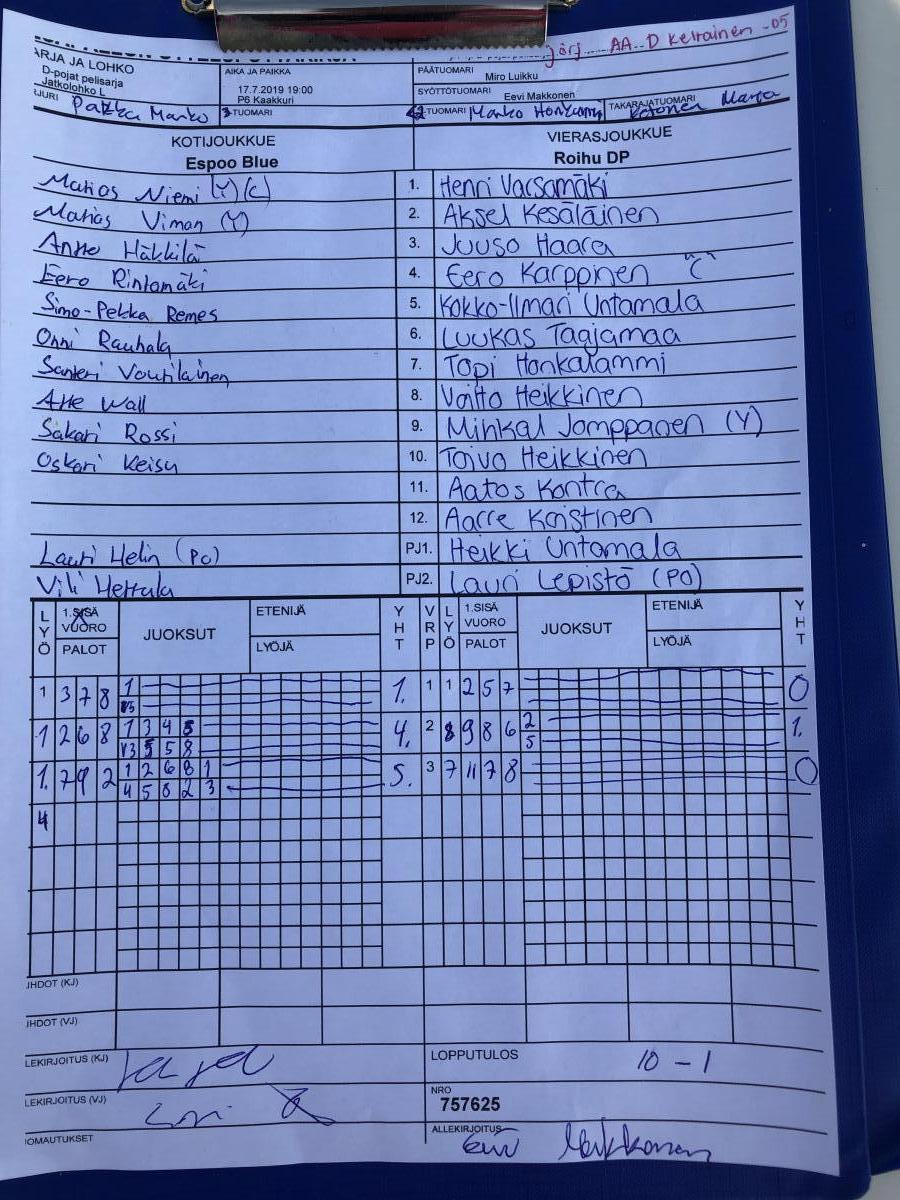 järj.... AA.. D Keltainen -05
ARJA JA LOHKO
D-pojat pelisarja
Jatkolohko L
AIKA JA PAIKKA
17.7.2019 19:00
P6 Kaakkuri
PÄÄTUOMARI
Miro Luikku
SYÖTTÖTUOMARI
Eevi Makkonen
TUOMARI
TUOMARI Marko Honkanni
TAKARAJATUOMARI
KOTIJOUKKUE
Espoo Blue
VIERASJOUKKUE
Roihu DP
Matias Niemi (Y)(C) 1. Henri Varsamäki
Matias Viman (Y) 2. Aksel Kesäläinen
Antto Häkkilä 3. Juuso Haara
Eero Rintamäki 4. Eero Karppinen "C"
Simo-Pekka Remes 5. Kokko-Ilmari Untamala
Onni Rauhala 6. Luukas Taajamaa
Santeri Voutilainen 7. Topi Honkalammi
Atte Wall 8. Voitto Heikkinen
Sakari Rossi 9. Minkal Jomppanen (Y)
Oskari Keisu 10. Toivo Heikkinen
11. Aatos Kontra
12. Aarre Koistinen
Lauri Helin (PO) PJ1. Heikki Untamala
Vili Hettula PJ2. Lauri Lepistö (PO)
LYÖ 1.SISÄ VUORO PALOT JUOKSUT ETENIJÄ LYÖJÄ YHT VRP LYÖ 1.SISÄ VUORO PALOT JUOKSUT ETENIJÄ LYÖJÄ YHT
1 3 7 8 1 1. 1 1 2 5 7 0
1 2 6 8 1 3 4 5 4. 2 8 9 8 6 2 1.
V3 5 5 8 5
1. 7 9 2 1 2 6 8 1 5. 3 7 11 7 8 0
4 5 8 2 3
4
JHDOT (KJ)
JHDOT (VJ)
LEKIRJOITUS (KJ)
LOPPUTULOS 10 - 1
LEKIRJOITUS (VJ)
NRO
757625
OMAUTUKSET
ALLEKIRJOITUS
Eevi Makkonen